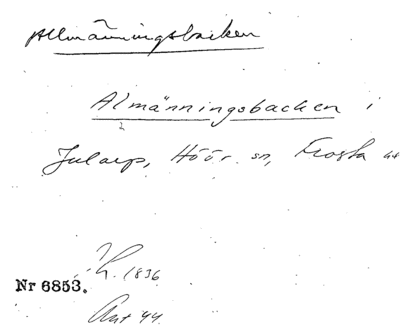 Allmänningsbacken
Almänningsbacken i
Julaep, Höör sn, Frosta
1836
Nr 6853.
44